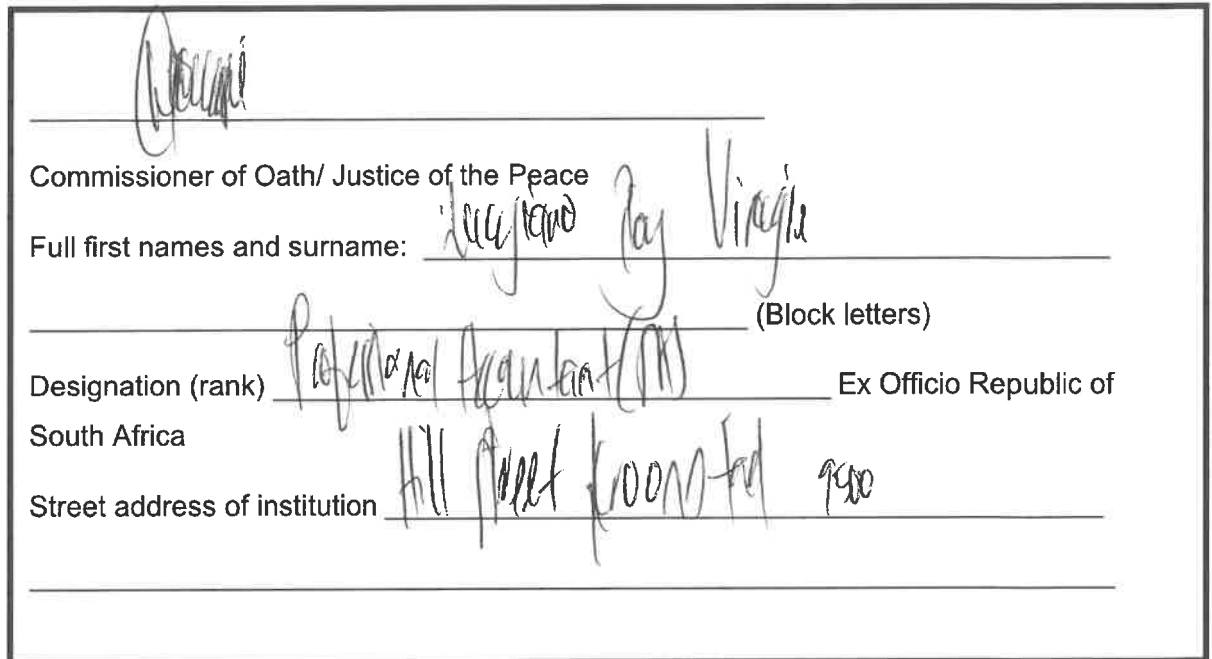 Commissioner of Oath/ Justice of the Peace
Full first names and surname: Ray
(Block letters)
Designation (rank) Professional Accountant (SA) Ex Officio Republic of
South Africa
Street address of institution Hill Street Kroonstad 9500